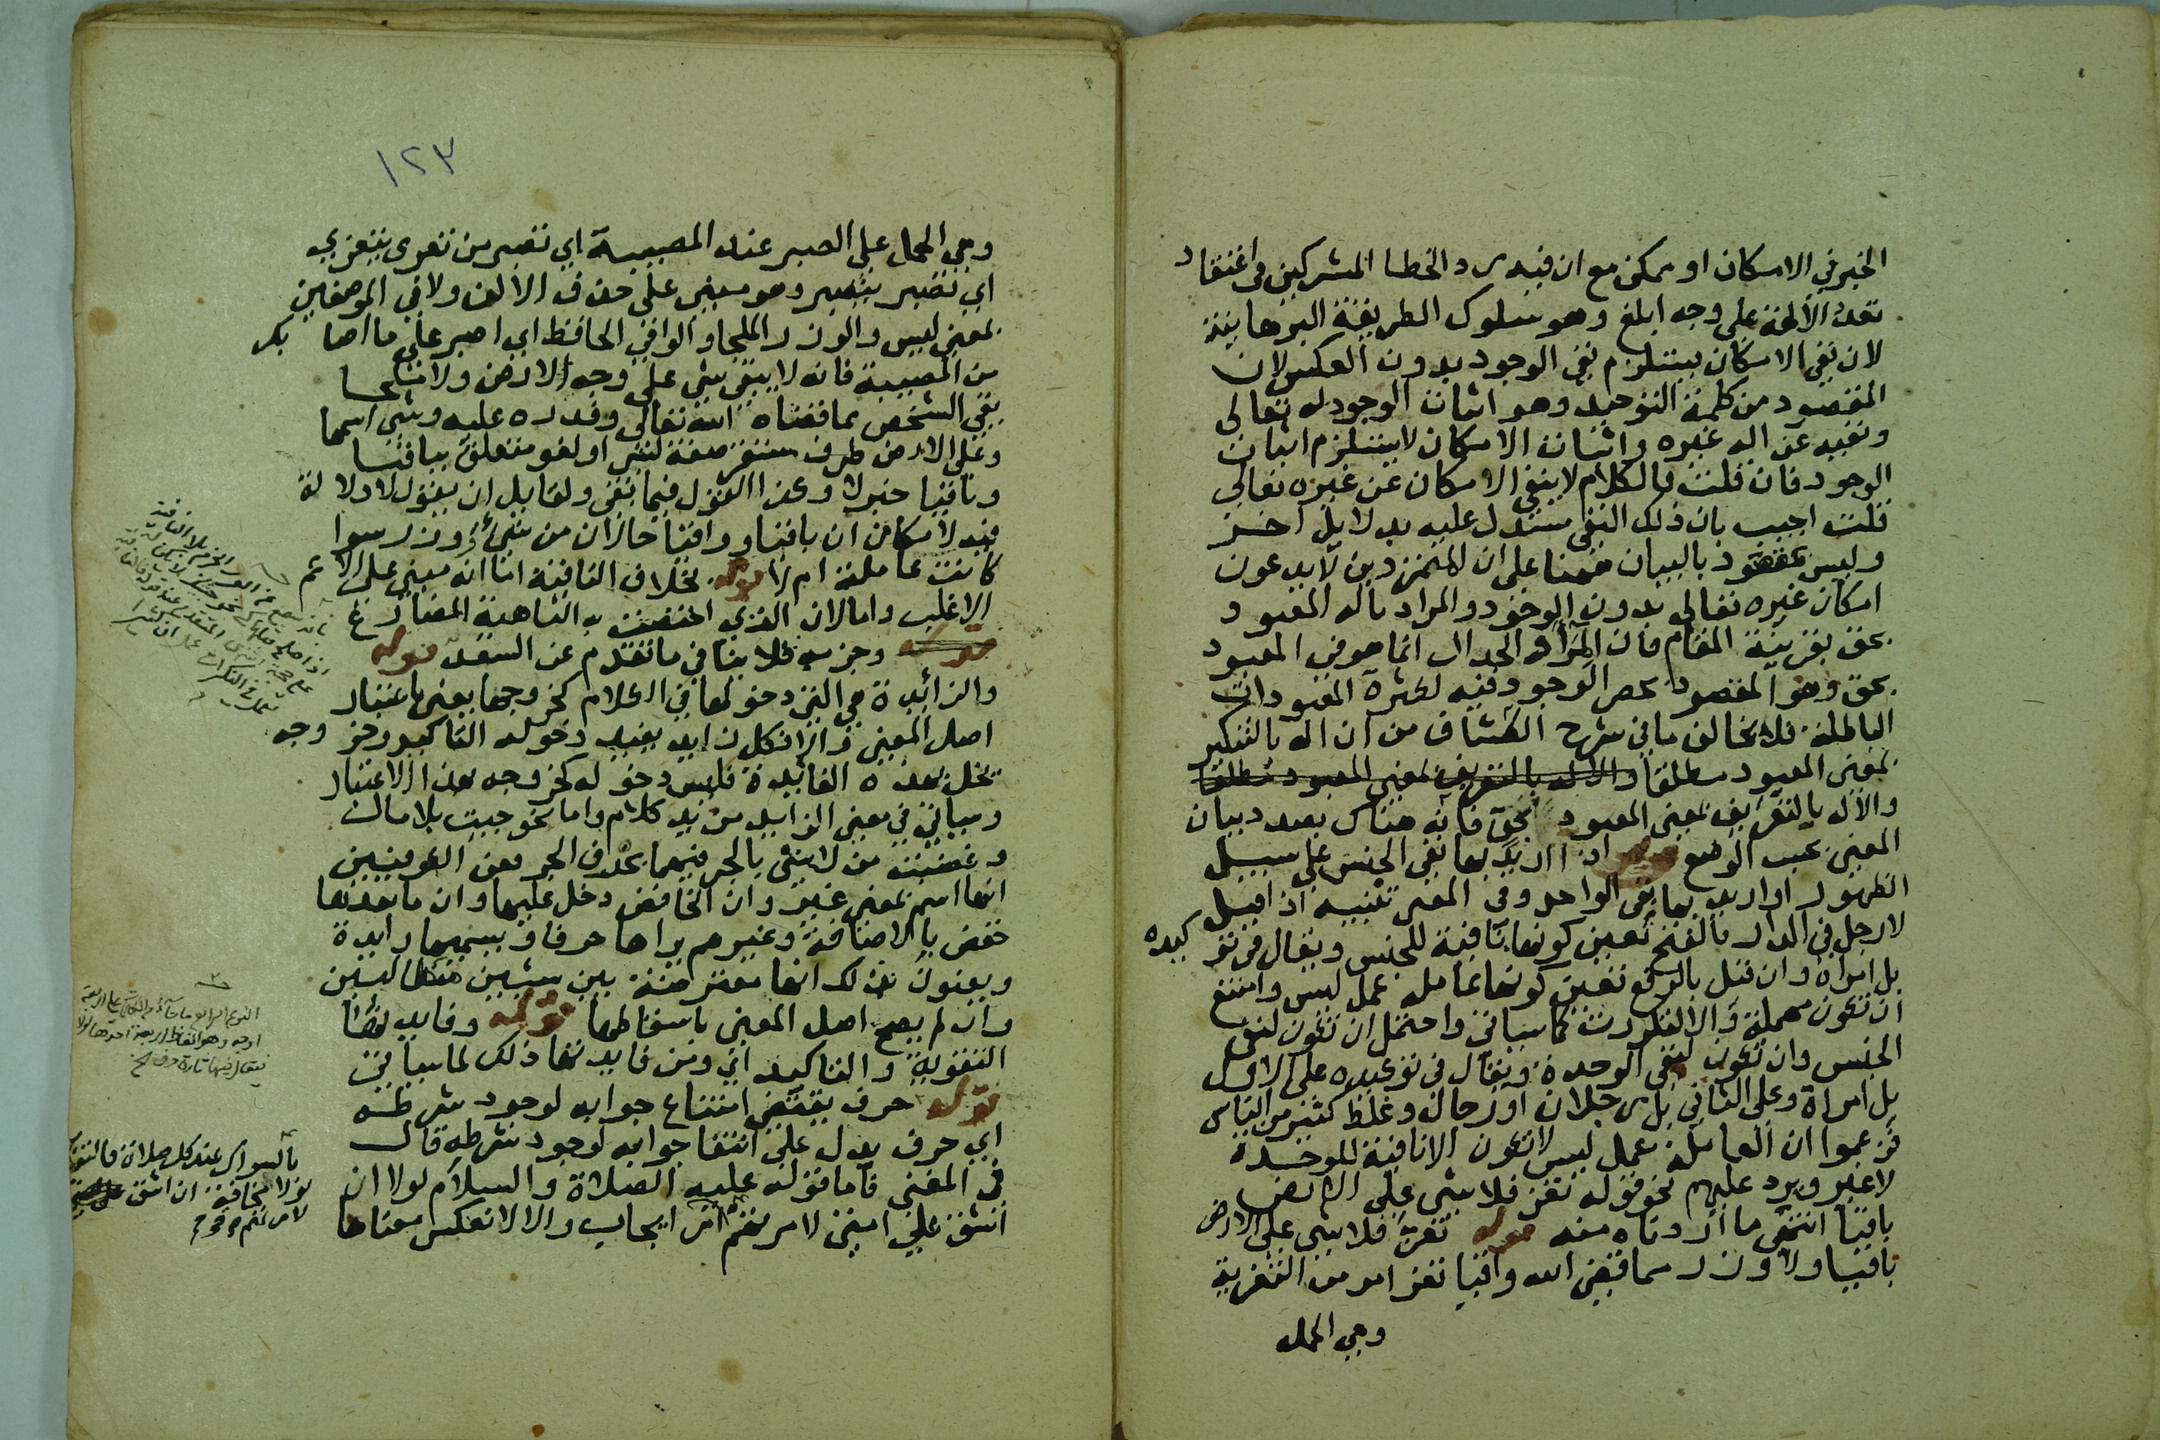 الخبر في الامكان او ممكن مع ان فيه رد الخطا المشركين في اعتقاد
تعدد الآلهة على وجه ابلغ وهو سلوك الطريقة البرهانية
لان نفي الامكان يستلزم نفي الوجود بدون العكس لان
المقصود من كلمة التوحيد وهو اثبات الوجود له تعالى
ونفيه عن اله غيره واثبات الامكان لا يستلزم اثبات
الوجود فان قلت فالكلام لا ينفي الامكان عن غيره تعالى
قلت اجيب بان ذلك النفي مستدل عليه بدلايل اخر
وليس مقصود بالبيان ههنا على ان المتمردين لا يدعون
امكان غيره تعالى بدون الوجود والمراد باله المعبود
بحق بقرينة المقام فان المراد الجدال انما هو في المعبود
بحق وهو المقصود بحصر الوجود فيه لكثرة المعبودات
الباطلة فلا يخالف ما في شرح الكشاف من ان اله بالتنكير
بمعنى المعبود مطلقا والاله بالتعريف بمعنى المعبود مطلقا
والاله بالتعريف بمعنى المعبود بحق فانه هناك بصدد بيان
المعنى بحسب الوضع قوله اذا اريد بها نفي الجنس على سبيل
الظهور او اريد بها نفي الواحد وفي المغنى تنبيه اذا قيل
لا رجل في الدار بالفتح تعين كونها نافية للجنس ويقال في توكيده
بل امراة وان قيل بالرفع تعين كونها عاملة عمل ليس وامتنع
ان تكون مهملة والا لتكررت كما سياتي واحتمل ان تكون لنفي
الجنس وان تكون لنفي الوحدة ويقال في توكيده على الاول
بل امراة وعلى الثاني بل رجلان او رجال وغلط كثير من الناس
فزعموا ان العاملة عمل ليس لا تكون الا نافية للوحدة
لا غير ويرد عليهم نحو قوله تعز فلا شي على الارض
باقيا انتهى ما اردناه منه قوله تعز فلا شي على الارض
باقيا ولا وزر مما قضى الله واقيا تعز امر من التعزية
وهي الحمل
١٢٣
وهي الحمل على الصبر عند المصيبة اي تصبر من تعزى يتعزى
اي تصبر يتصبر وهو مبني على حذف الالف ولا في الموضعين
بمعنى ليس والوزر الملجا والواقي الحافظ اي اصبر على ما اصابك
من المصيبة فانه لا يبقى شي على وجه الارض ولا ملجا
يقي الشخص مما قضاه الله تعالى وقدره عليه وشي اسمها
وعلى الارض ظرف مستقر صفة لشي او لغو متعلق بباقيا
وباقيا خبرها وهذا القول فيما نفى ولقايل ان يقول لا دلالة
فيه لامكان ان باقيا وواقيا حالان من شي ووزر سوا
كانت عاملة ام لا قوله بخلاف النافية اما انه مبني على الاعم
الاغلب واما لان الذي اختصت به الناهية المضارع
قوله وجزمه فلا ينافي ما تقدم عن السعد قوله
والزائدة هي التي دخولها في الكلام كخروجها يعني باعتبار
اصل المعنى والا فكل زايد يفيد دخوله التاكيد وخروجه
يخل بهذه الفائدة فليس دخوله كخروجه بهذا الاعتبار
وسياتي في معنى الزايد مزيد كلام واما نحو جيت بلا مال
وغضبت من لا شي بالجر فيهما بحرف الجر فعن الكوفيين
انها اسم بمعنى غير وان الخافض دخل عليها وان ما بعدها
خفض بالاضافة وغيرهم يراها حرفا ويسميها زايدة
ويعنون بذلك انها معترضة بين شيين متطالبين
وان لم يصح اصل المعنى باسقاطها قوله وفايدتها
التقوية والتاكيد اي ومن فايدتها ذلك لما سياتي
قوله حرف يقتضي امتناع جوابه لوجود شرطه
اي حرف يدل على انتفا جوابه لوجود شرطه قال
في المغنى فاما قوله عليه الصلاة والسلام لولا ان
اشق على امتي لامرتهم امر ايجاب والا لانعكس معناها
النوع الرابع ما جآ من الكلمات على اربعة
اوجه وهو الفاظ اربعة احدها لولا
فيقال فيها تارة حرف الخ
بالسواك عند كل صلاة فالتقدير
لولا مخافة ان اشق على امتي
لامرتهم